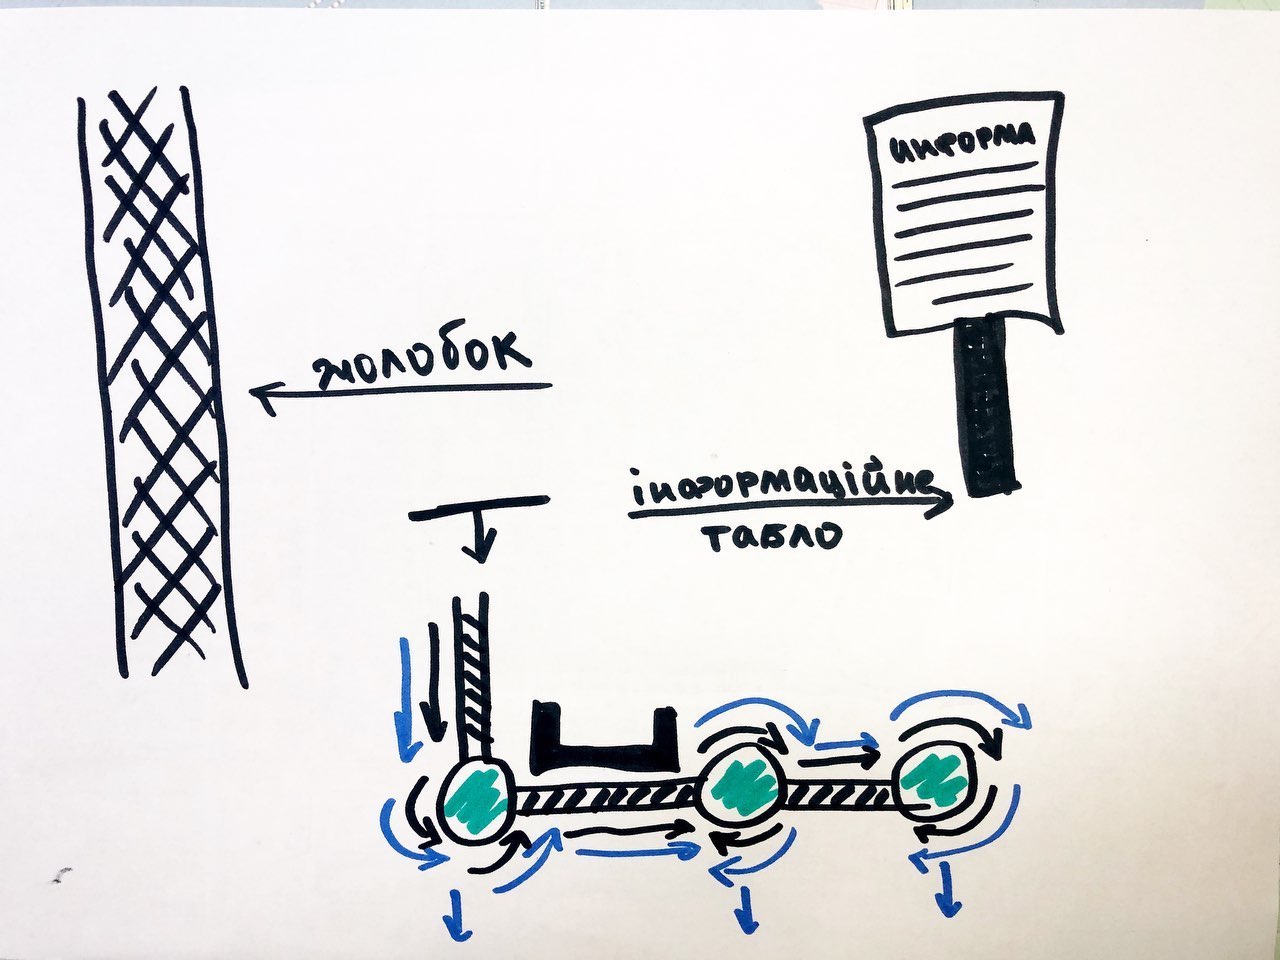 информа
жолобок
інформаційне
табло